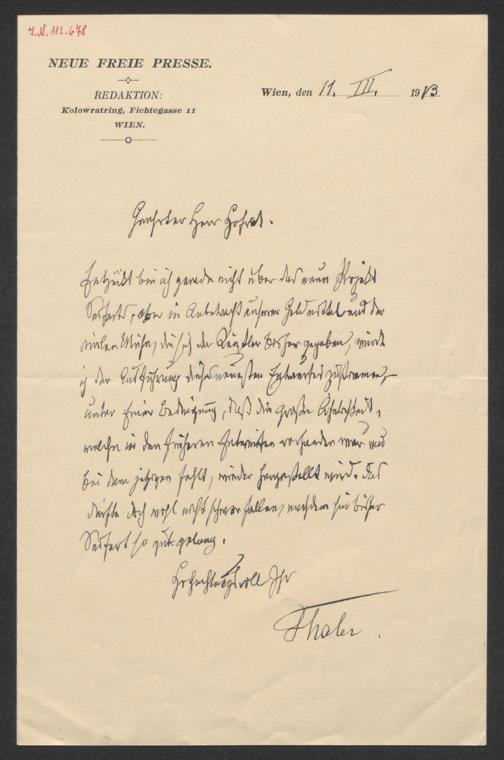 I.N. 112.678
NEUE FREIE PRESSE.
REDAKTION:
Kolowratring, Fichtegasse 11
WIEN.
Wien, den 11. III. 1913
Geehrter Herr Hofrat.
Entzückt bin ich gerade nicht über das neue Projekt
Seiferts, aber in Anbetracht unserer Geldmittel und der
vielen Mühe, die sich der Künstler bisher gegeben, würde
ich der Ausführung dieses neuesten Entwurfes zustimmen,
unter Einer Bedingung, daß die große
welche in den früheren Entwürfen vorhanden war und
bei dem jetzigen fehlt, wieder hergestellt wird. Das
dürfte doch wohl nicht schwer fallen, nachdem sie bisher
Seifert so gut gelang.
Hochachtungsvoll Ihr
Thaler.